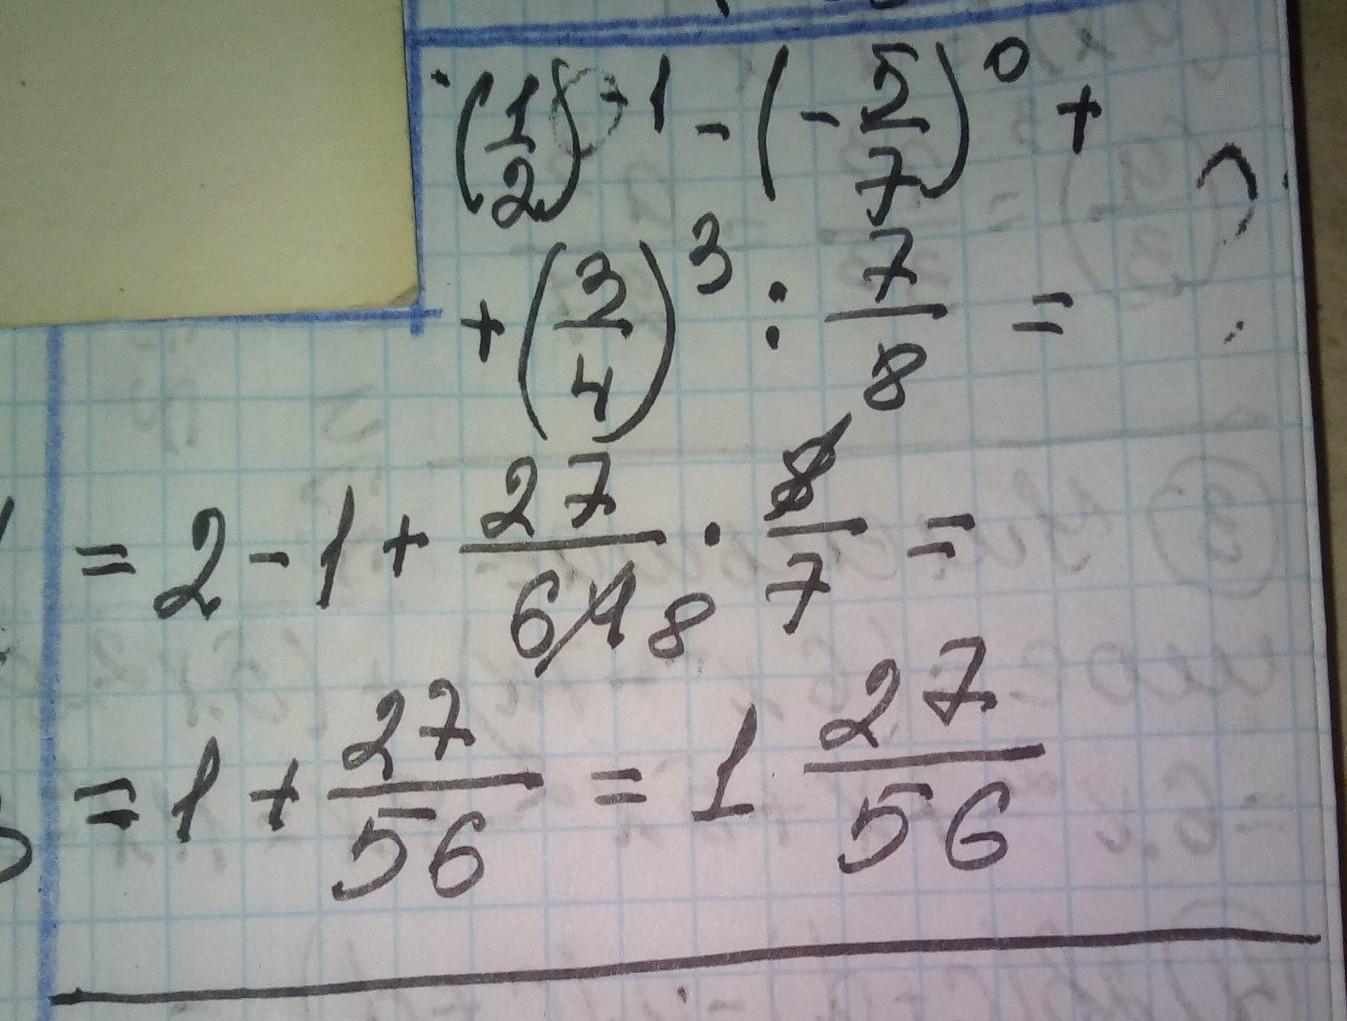 (1/2)^-1 - (-5/7)^0 +
+ (3/4)^3 : 7/8 =
= 2 - 1 + 27/64 8 · 8/7 =
= 1 + 27/56 = 1 27/56